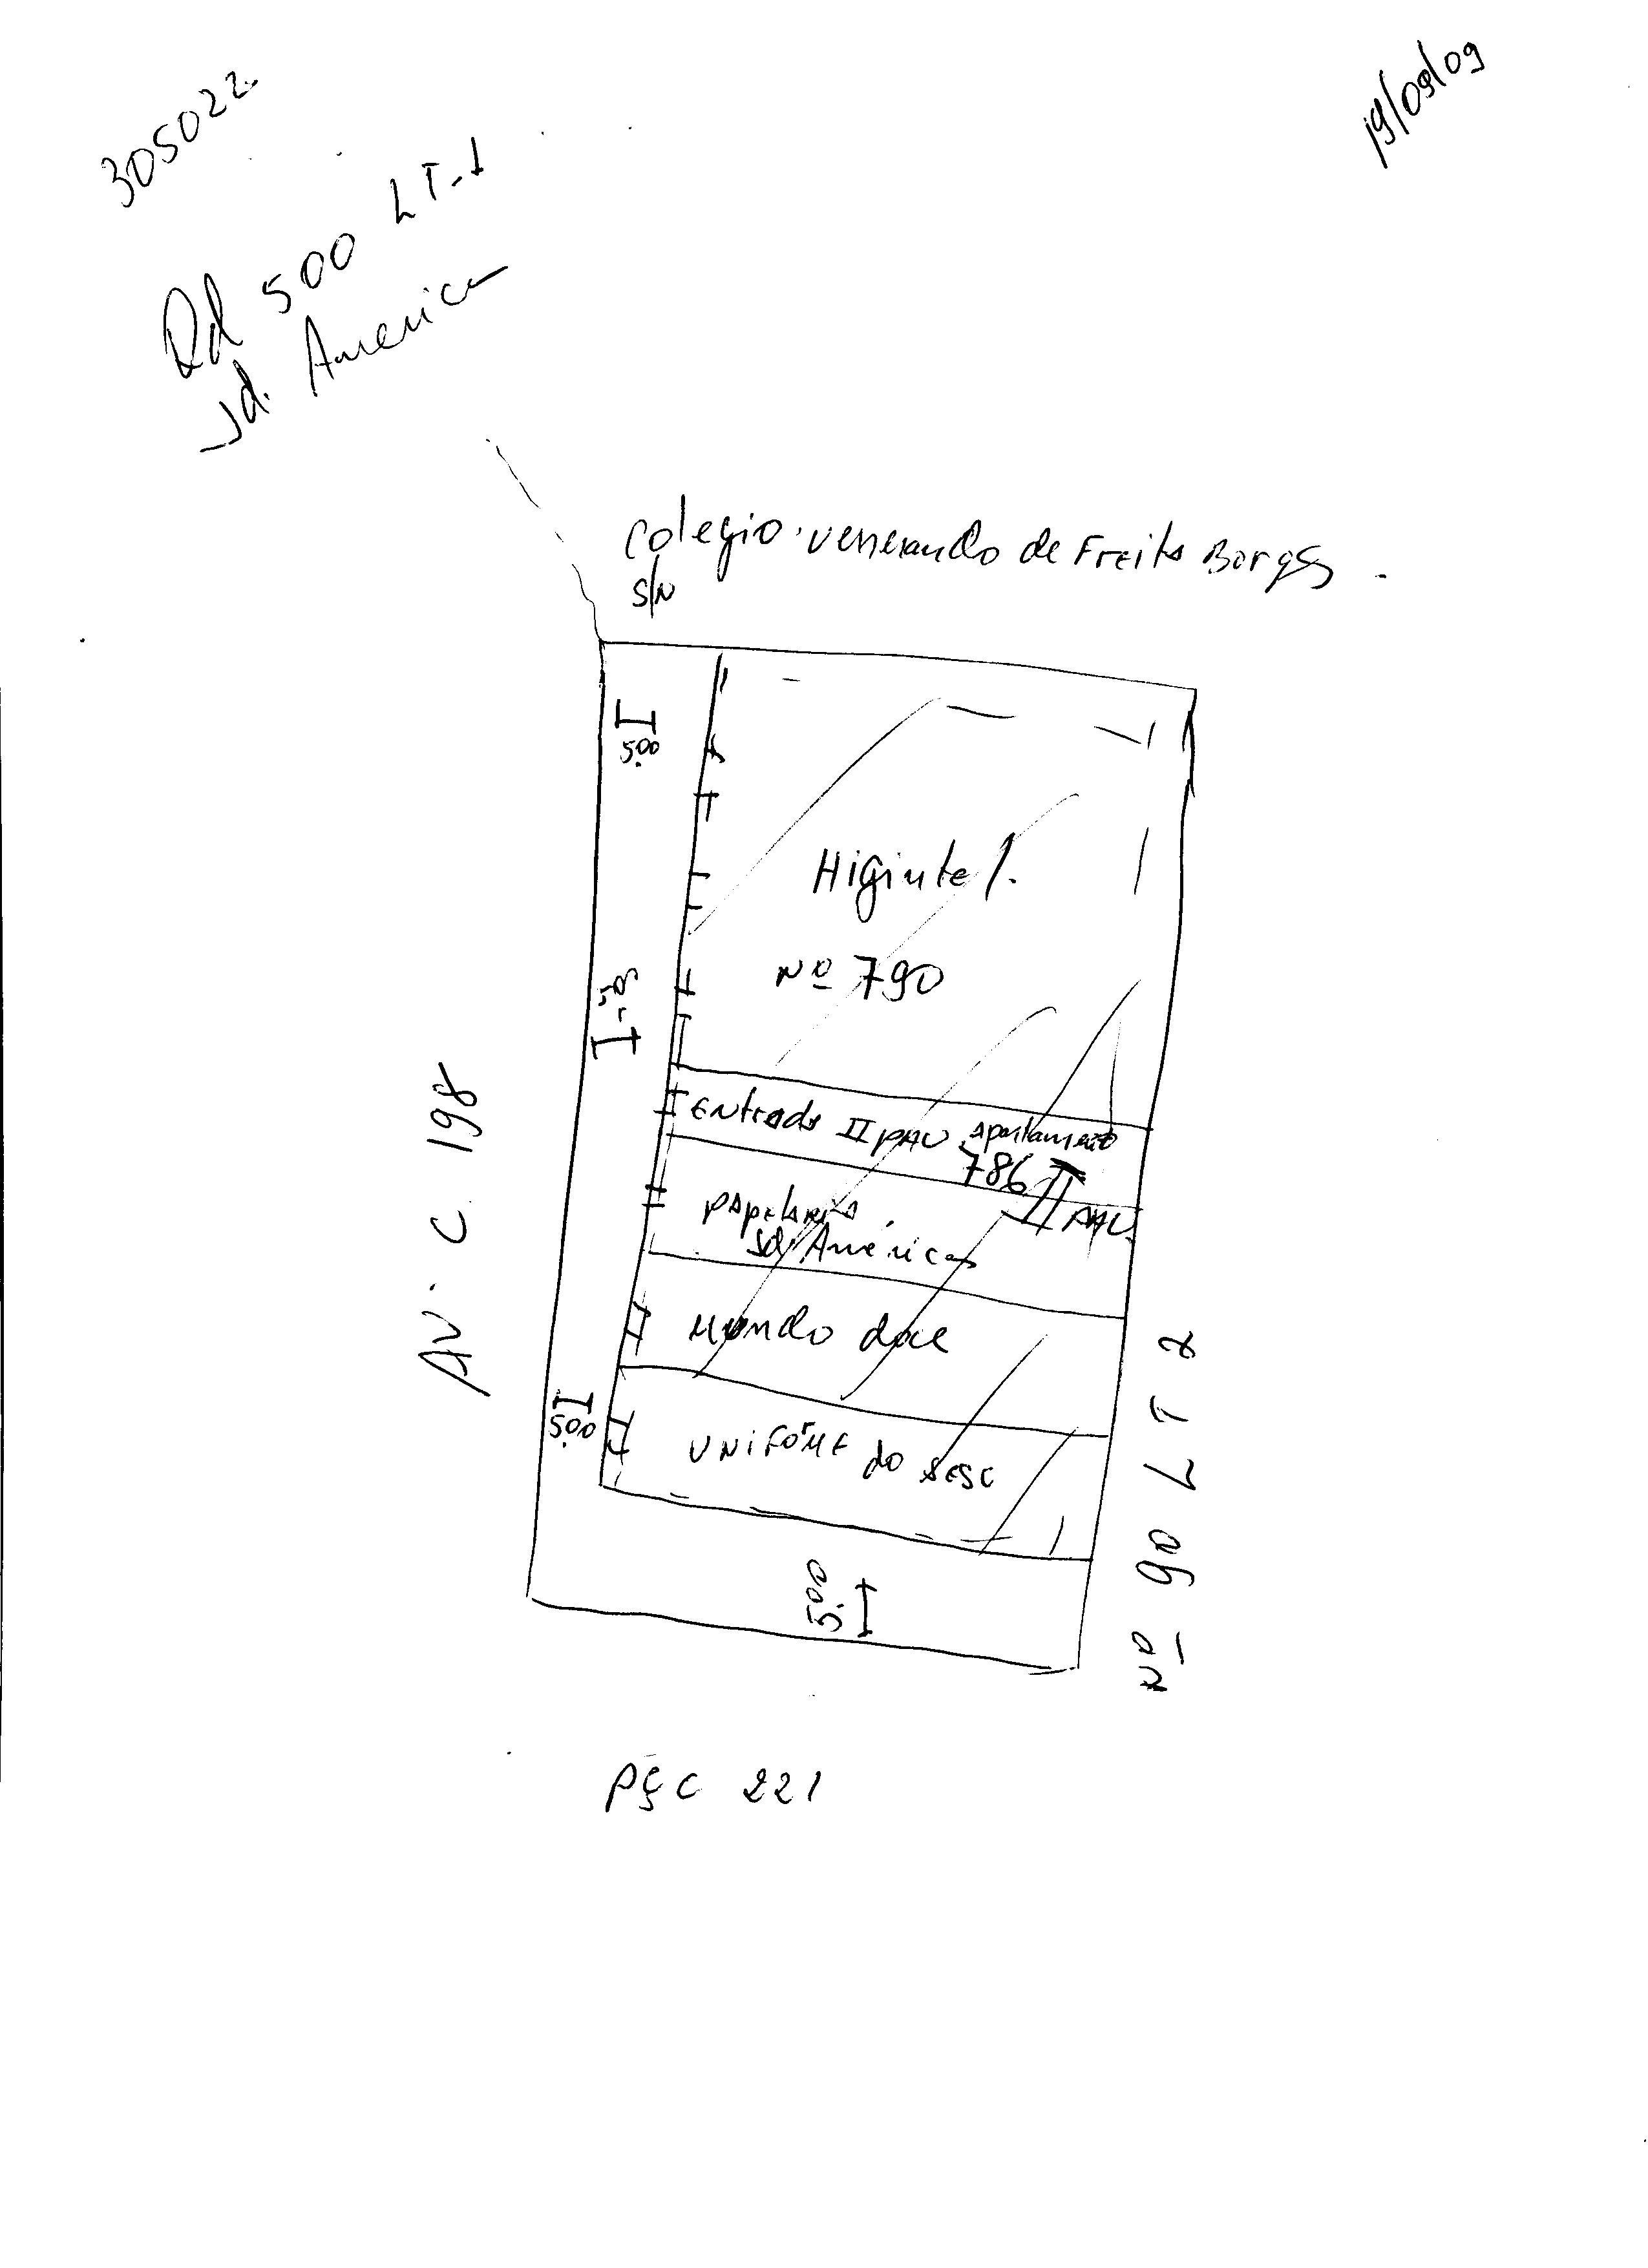 305022.
19/09/09
Qd 500 LT-1
Jd. America
Colegio Venerando de Freita Borges.
S/N
5.00
Higintel.
Nº 790
5.00
Entrada II PAV. apartamento
786 II PAV.
Papelaria
Jd. América
AV. C. 198
Mundo doce
5.00
UNIFORME do SESC
Nº 90 LT 2
5.00
PÇ C 221